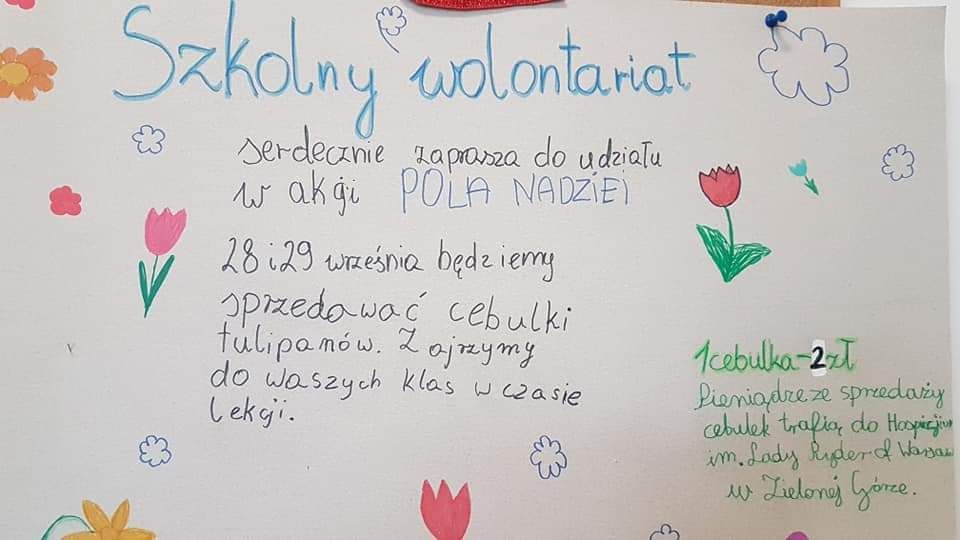 Szkolny wolontariat
serdecznie zaprasza do udziału
w akcji POLA NADZIEI
28 i 29 września będziemy
sprzedawać cebulki
tulipanów. Zajrzymy
do waszych klas w czasie
lekcji.
1 cebulka - 2 zł
Pieniądze ze sprzedaży
cebulek trafią do Hospicjum
im. Lady Ryder of Warsaw
w Zielonej Górze.